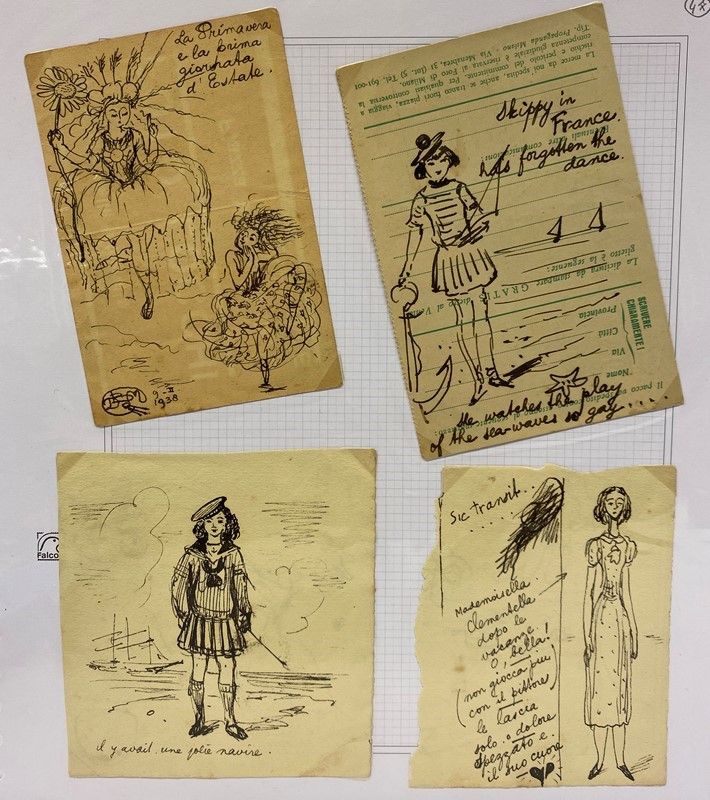 47
La Primavera
e la prima
giornata
d'Estate.
9-II
1938
La merce da noi spedita, anche se franco fuori piazza, viaggia a
rischio e pericolo del committente. Per qualsiasi controversia la
competenza giudiziale è riservata al Foro di Milano.
Tip. Propaganda Milano - Via Menabrea, 31 (int. 5) Tel. 691-001
Skippy in
France.
has forgotten the
dance.
Eventuali altre comunicazioni
La dicitura da stampare GRATIS
glietto è la seguente:
SCRIVERE
CHIARAMENTE!
Provincia
Città
Via
Nome
Il pacco
He watches the play
of the sea-waves so gay....
Falco
il y avait une jolie navire.
Sic transit...
......
Mademoisella
Clementella
dopo le
vacanze.
O, bella!
(non giocca piu
con il pittore)
le lascia
solo. o dolore
spezzato e.
il suo cuore